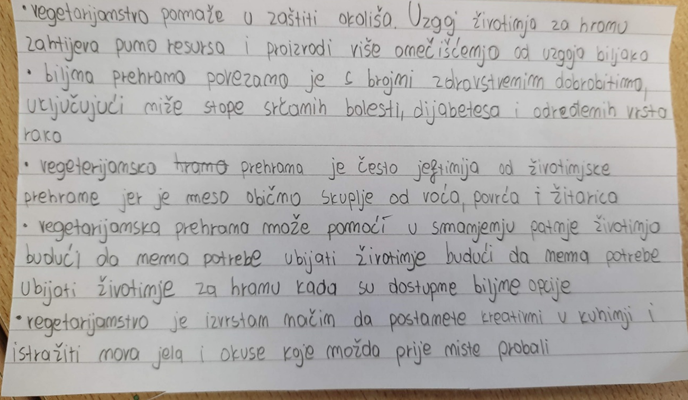 • vegetarijanstvo pomaže u zaštiti okoliša. Uzgoj životinja za hranu
zahtijeva puno resursa i proizvodi više onečišćenja od uzgoja biljaka
• biljna prehrana povezana je s brojnim zdravstvenim dobrobitima,
uključujući niže stope srčanih bolesti, dijabetesa i određenih vrsta
raka
• vegeterijansko hrana prehrana je često jeftinija od životinjske
prehrane jer je meso obično skuplje od voća, povrća i žitarica
• vegetarijanska prehrana može pomoći u smanjenju patnje životinja
budući da nema potrebe ubijati životinje budući da nema potrebe
ubijati životinje za hranu kada su dostupne biljne opcije
• vegetarijanstvo je izvrstan način da postanete kreativni u kuhinji i
istražiti nova jela i okuse koje možda prije niste probali